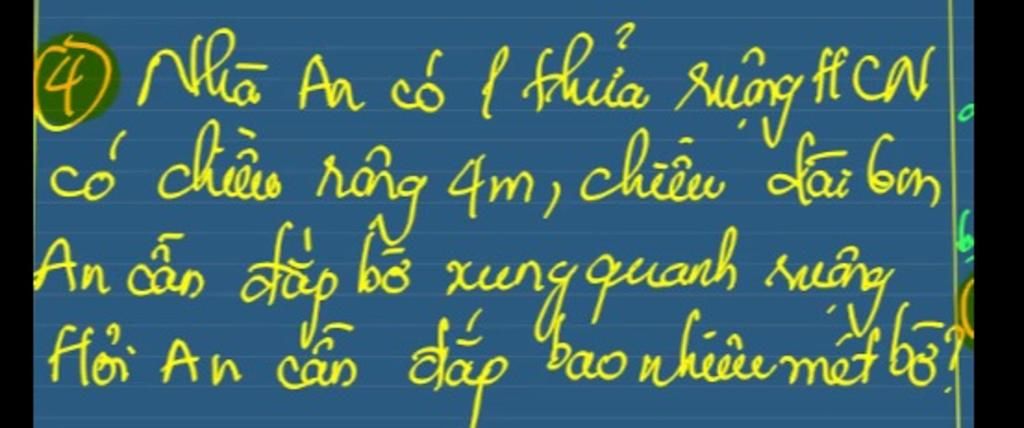 ④ Nhà An có 1 thửa ruộng HCN
có chiều rộng 4m, chiều dài 6m,
An cần đắp bờ xung quanh ruộng
Hỏi An cần đắp bao nhiêu mét bờ?